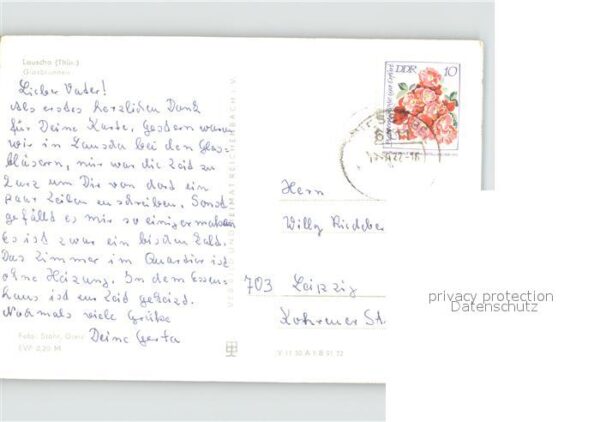 Lauscha (Thür.)
Glasbrunnen
Lieber Vater!
Als erstes herzlichen Dank
für Deine Karte. Gestern waren
wir in Lauscha bei den Glas-
bläsern, nur war die Zeit zu
kurz um Dir von dort ein
paar Zeilen zu schreiben. Sonst
gefällt es mir so einigermaßen
Es ist zwar ein bischen kalt.
Das Zimmer im Quartier ist
ohne Heizung. In dem Essen-
haus ist zur Zeit geheizt.
Nochmals viele Grüße
Deine Gerta
Foto: Stahr, Greiz
VERLAG UND HEIMAT REICHENBACH i. V.
V 11 50 A 1 B 91 72
DDR 10
Herrn
Willy
703 Leipzig
Kohrener St
privacy protection
Datenschutz